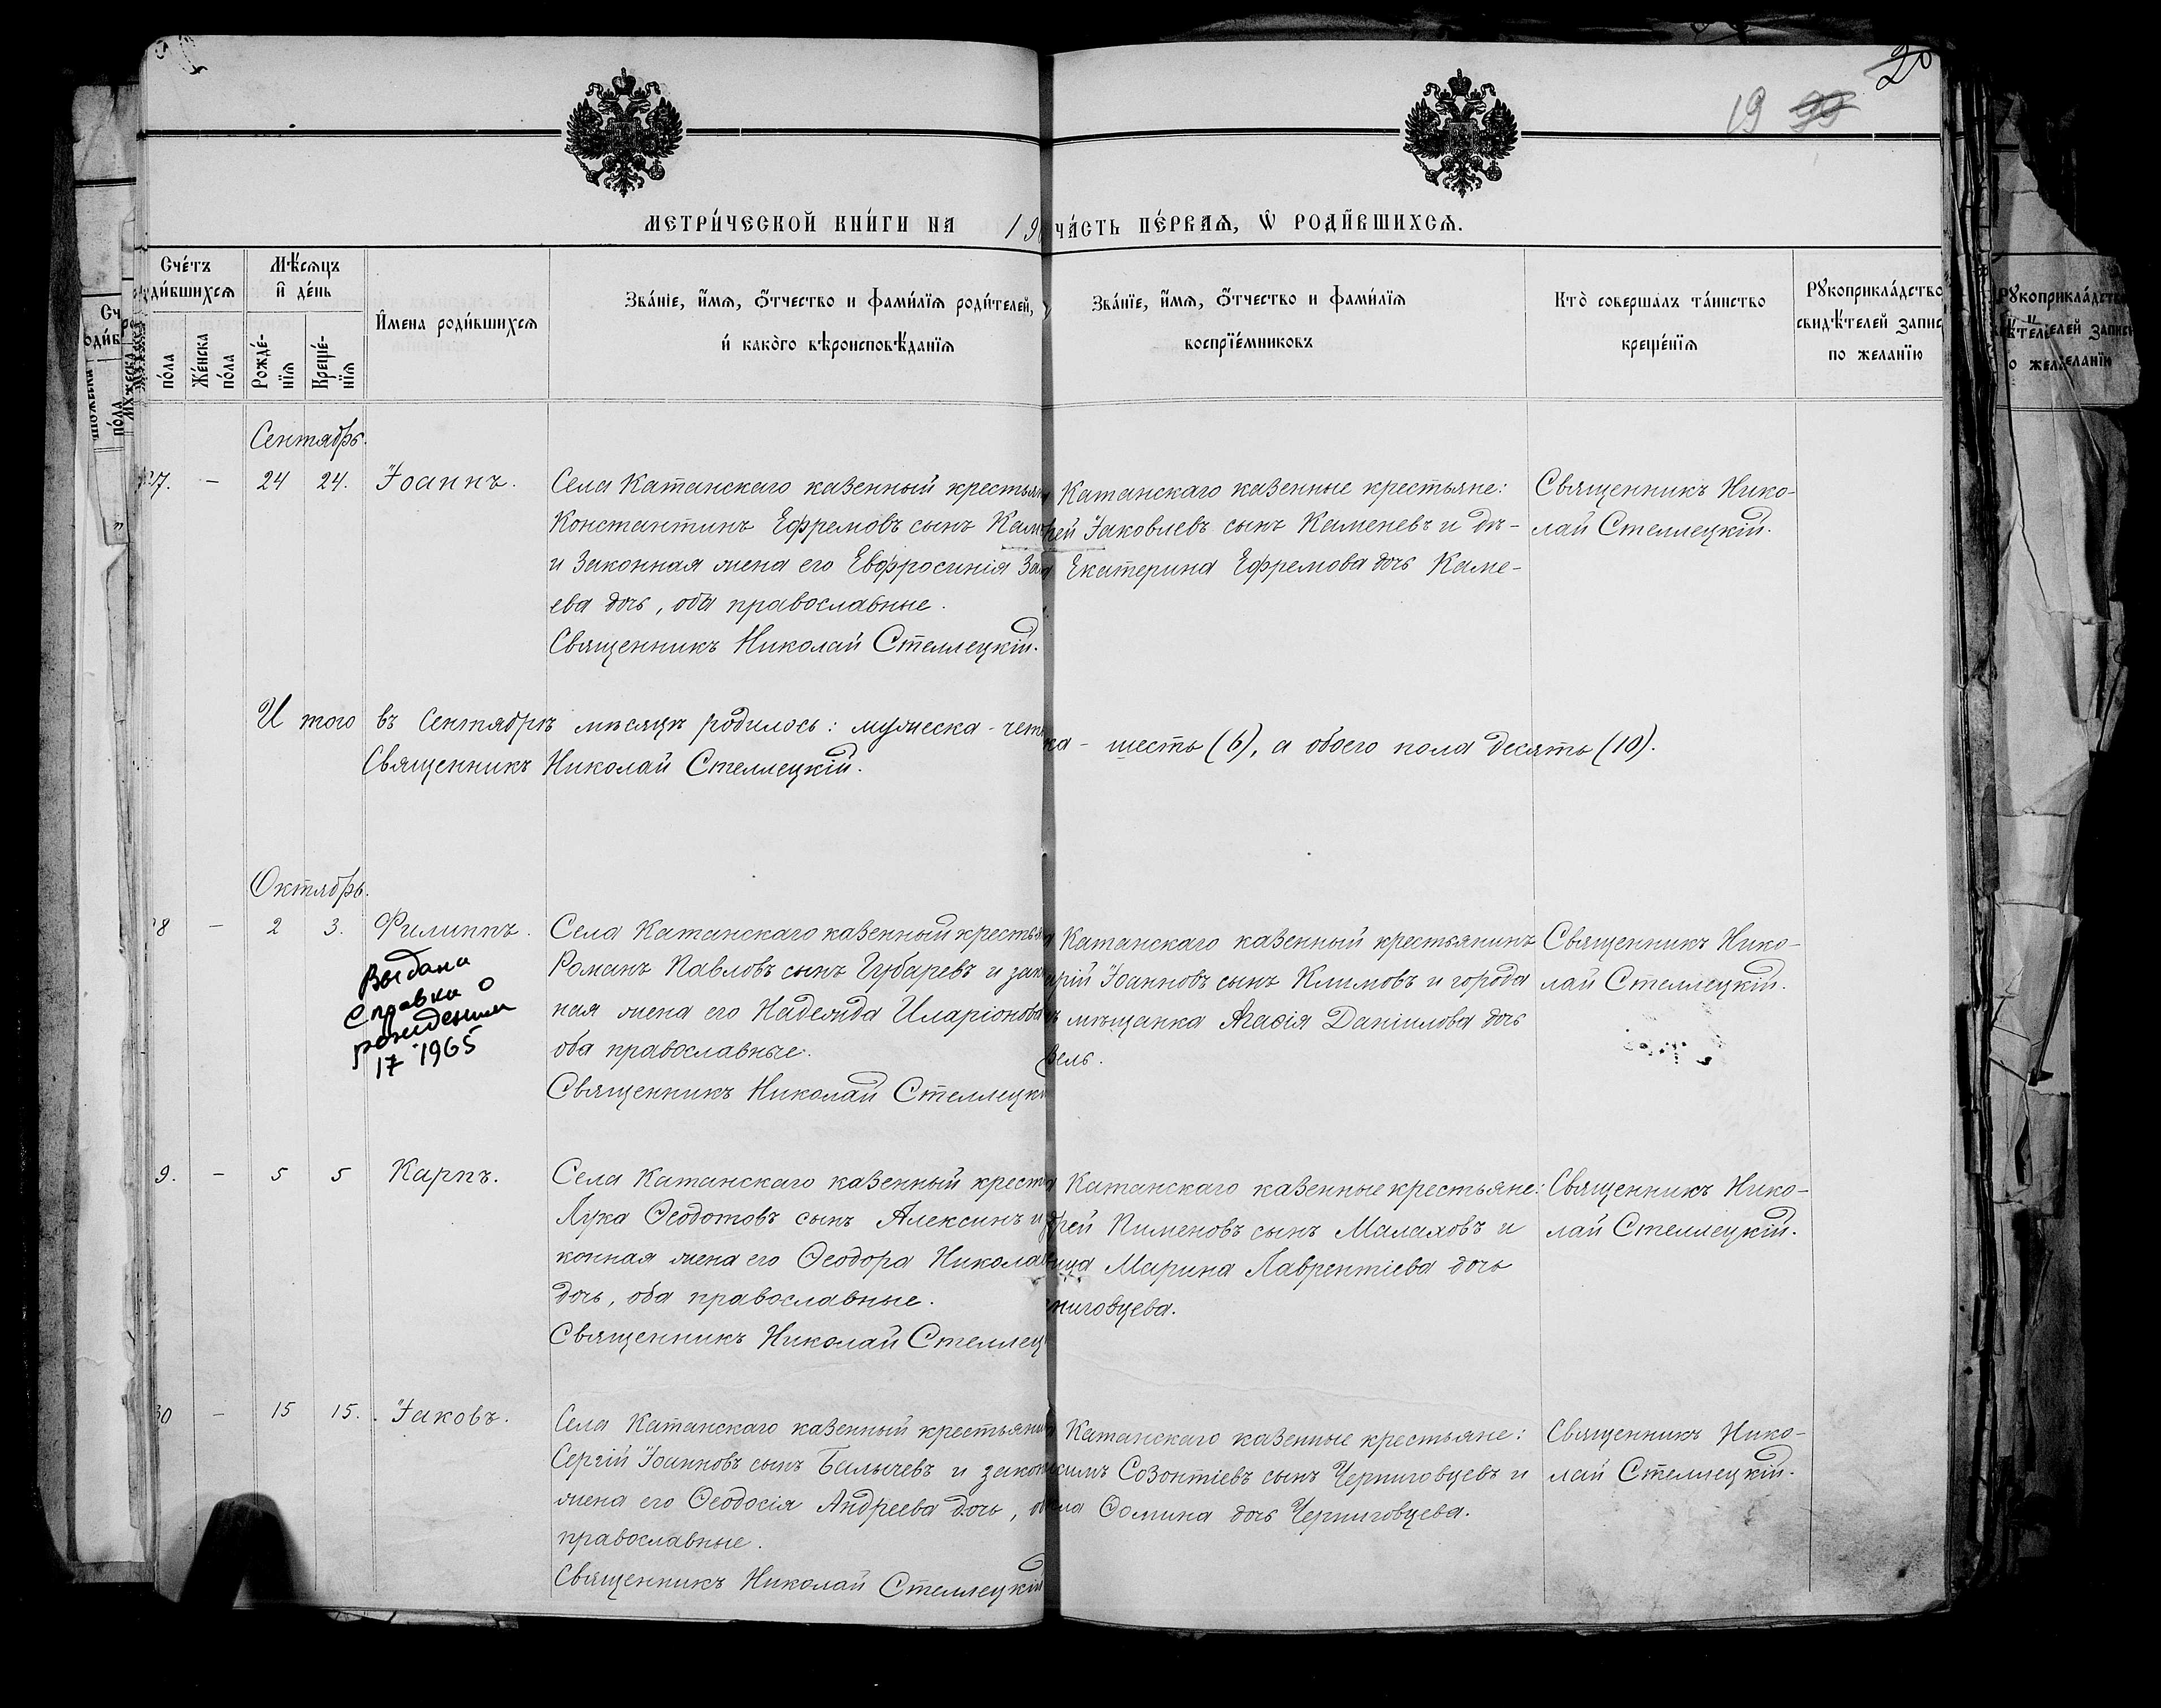 20
19 99
МЕТРИ́ЧЕСКОЙ КНИ́ГИ НА 19
ЧА́СТЬ ПЕ́РВАѦ, Ѡ҆ РОДИ́ВШИХСѦ.
Сче́тъ
ди́вшихсѧ
Мѣ́сѧцъ
и҆ де́нь
по́ла
Же́нска
по́ла
Рожде́-
нїѧ
Креще́-
нїѧ
И҆мена роди́вшихсѧ
Зва́нїе, и҆́мѧ, ѻ҆́тчество и фами́лїѧ роди́телей,
и҆ како́го вѣроисповѣ́данїѧ
Зва́нїе, и҆́мѧ, ѻ҆́тчество и фами́лїѧ
воспрїе́мниковъ
Кто̀ соверша́лъ та́инство
креще́нїѧ
Рꙋкоприкла́дство
свидѣ́телей запис
по жела́нїю
Сентябрь.
27. - 24 24. Іоаннъ.
Села Катанскаго казенный крестьян
Константинъ Ефремовъ сынъ Каме
и законная жена его Евфросинія За
ева дочь, оба православные.
Священникъ Николай Стеллецкій.
Катанскаго казенные крестьяне:
рей Іаковлевъ сынъ Каменевъ и дѣ-
Екатерина Ефремова дочь Каме-
Священникъ Нико-
лай Стеллецкій.
И того въ Сентябрѣ мѣсяцѣ родилось: мужеска - чет
ка - шесть (6), а обоего пола десять (10).
Священникъ Николай Стеллецкій.
Октябрь.
28 - 2 3. Филиппъ.
Выдана
справка о
рождении
17 1965
Села Катанскаго казенный крестья
Романъ Павловъ сынъ Губаревъ и зак
ная жена его Надежда Иларіонова
оба православные.
Священникъ Николай Стеллецкі
Катанскаго казенный крестьянинъ
рій Іоанновъ сынъ Климовъ и города
мѣщанка Агаѳія Даніилова дочь
зель.
Священникъ Нико-
лай Стеллецкій.
9. - 5 5 Карпъ.
Села Катанскаго казенный кресть
Лука Ѳеодотовъ сынъ Алексинъ и
конная жена его Ѳеодора Никола
дочь, оба православные.
Священникъ Николай Стеллец
Катанскаго казенные крестьяне:
рей Пименовъ сынъ Малаховъ и
ица Марина Лаврентіева дочь
ниговцева.
Священникъ Нико-
лай Стеллецкій.
30 - 15 15. Іаковъ.
Села Катанскаго казенный крестьяни
Сергій Іоанновъ сынъ Балычевъ и закон
жена его Ѳеодосія Андреева дочь, об
православные.
Священникъ Николай Стеллецкій
Катанскаго казенные крестьяне:
кимъ Созонтіевъ сынъ Черниговцевъ и
ла Ѳомина дочь Черниговцева.
Священникъ Нико-
лай Стеллецкій.